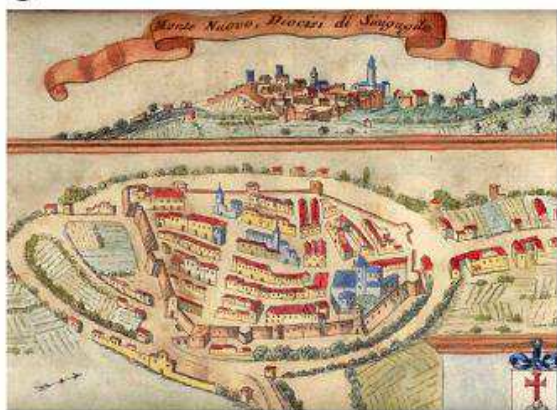 Monte Nuovo, Diocesi di Sinigaglia